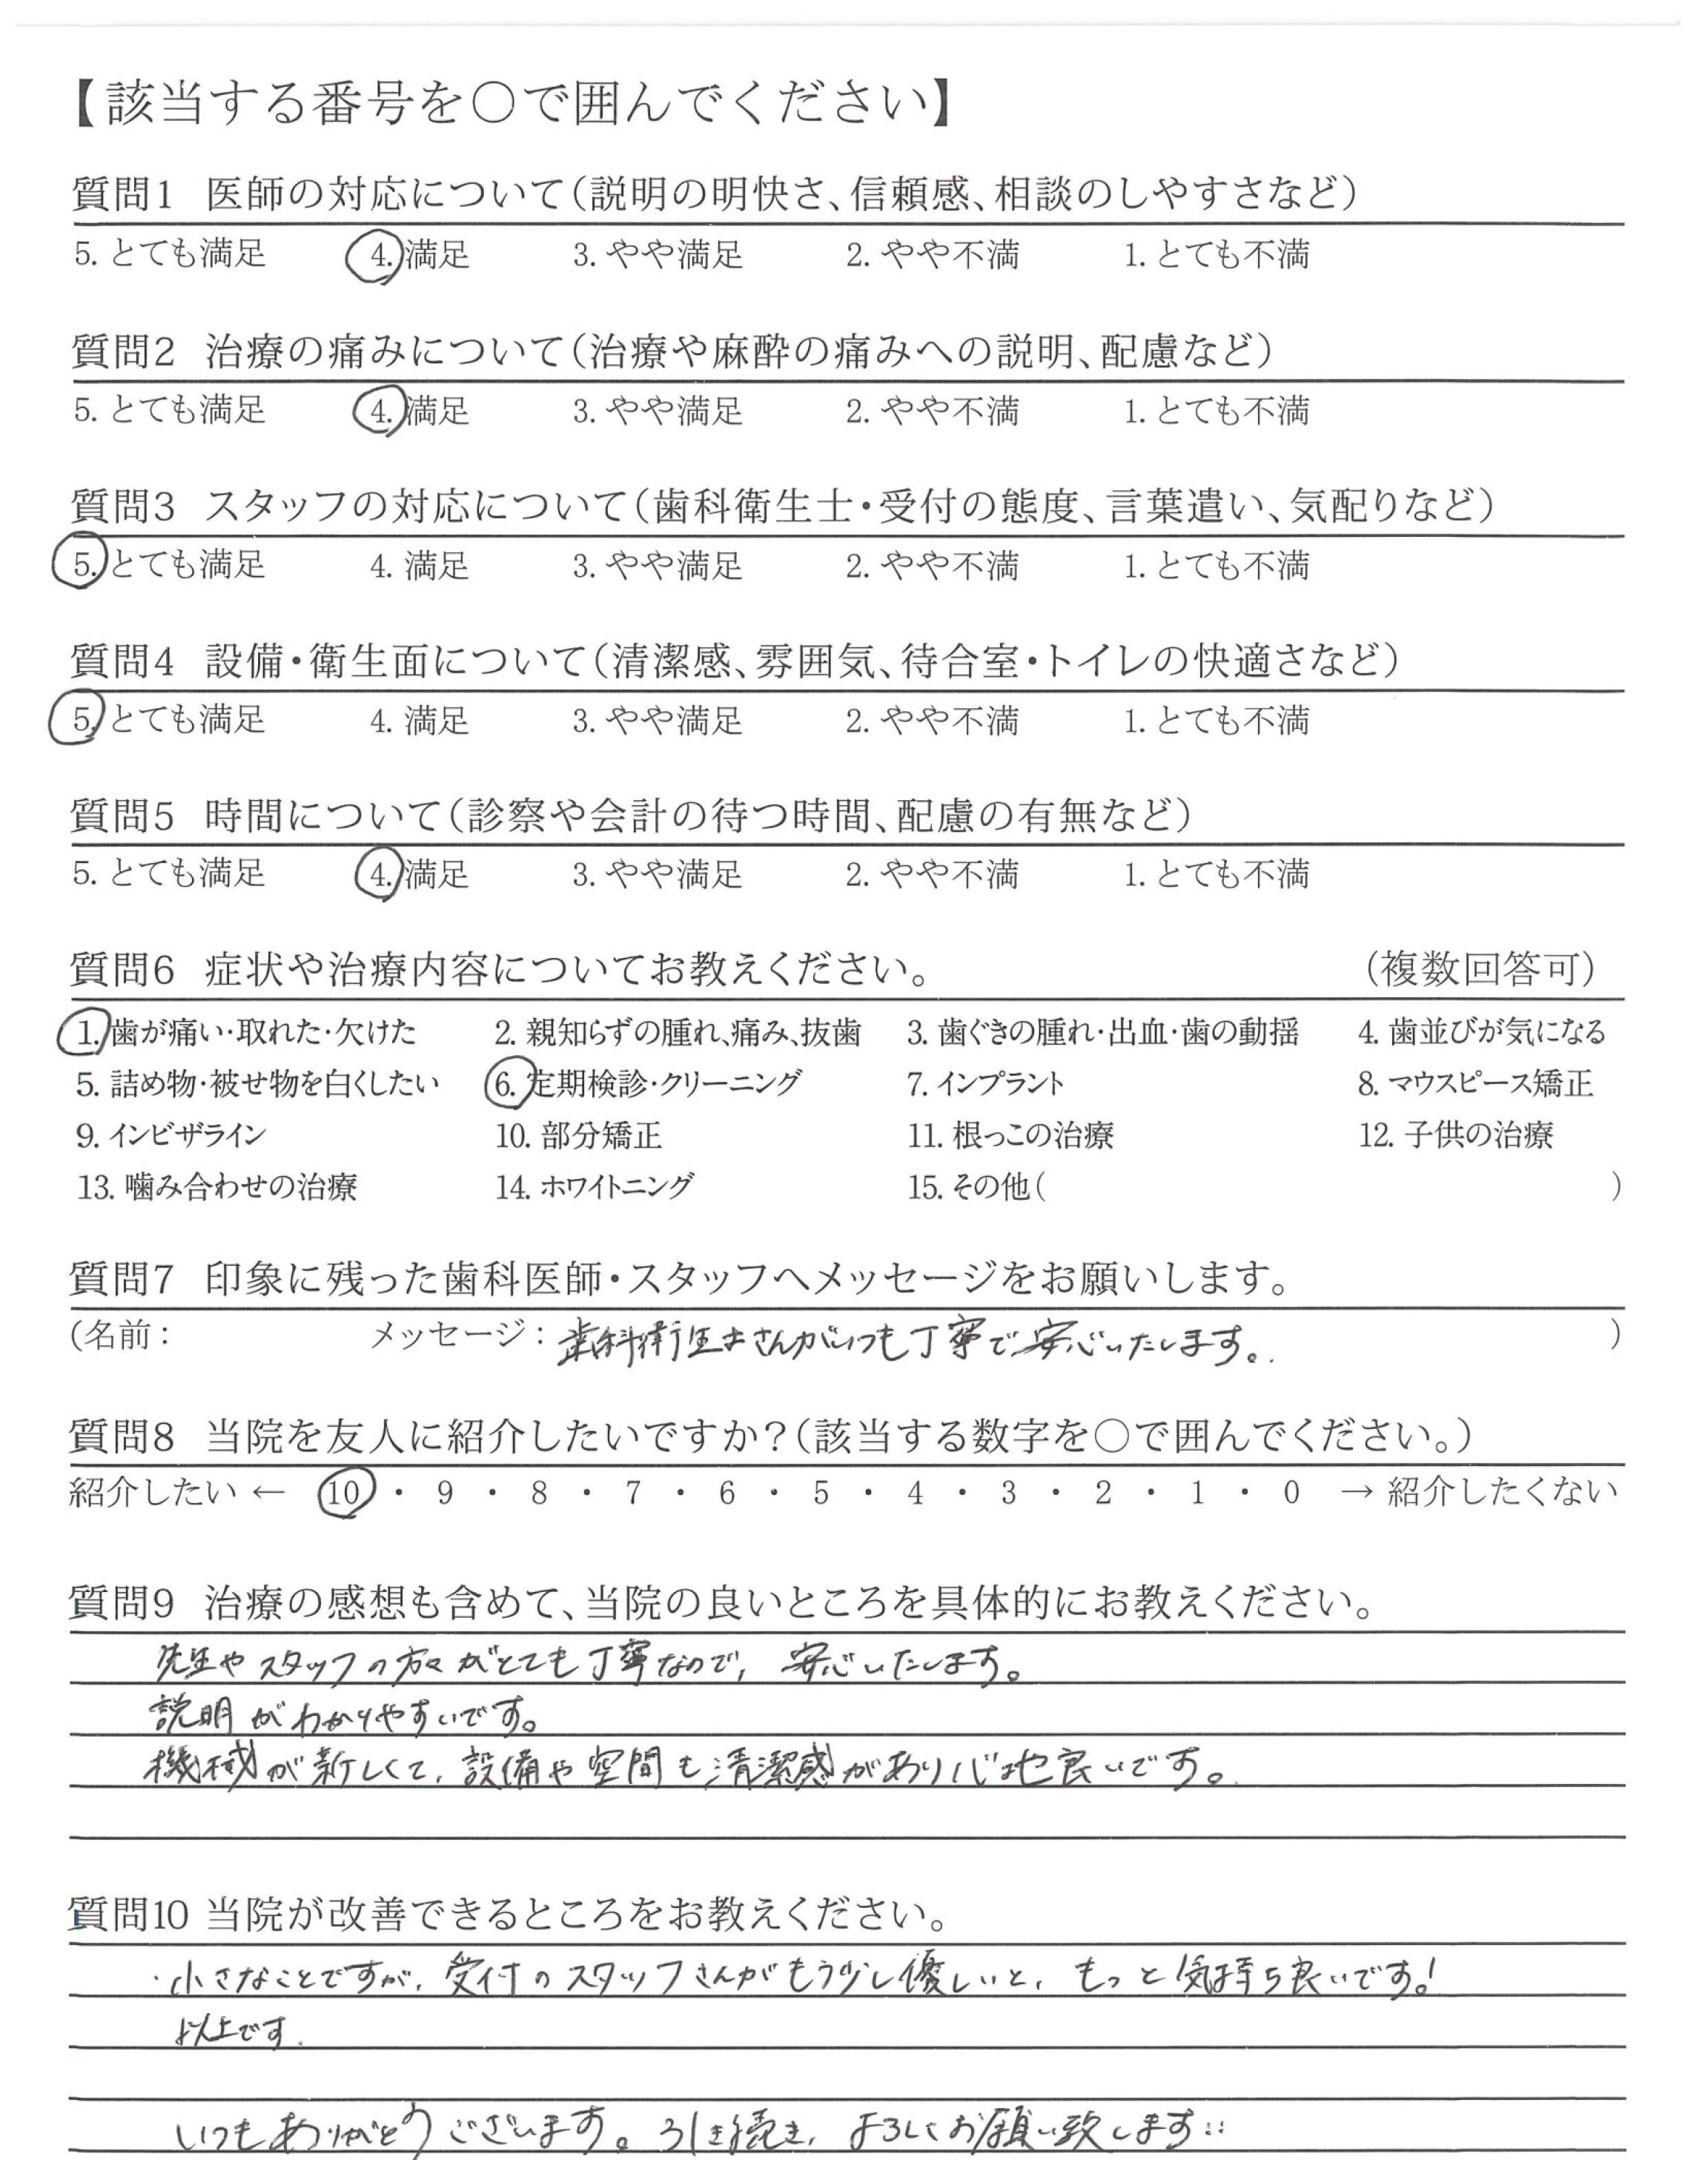 【該当する番号を〇で囲んでください】
質問1 医師の対応について(説明の明快さ、信頼感、相談のしやすさなど)
5. とても満足 4. 満足 3. やや満足 2. やや不満 1. とても不満
質問2 治療の痛みについて(治療や麻酔の痛みへの説明、配慮など)
5. とても満足 4. 満足 3. やや満足 2. やや不満 1. とても不満
質問3 スタッフの対応について(歯科衛生士・受付の態度、言葉遣い、気配りなど)
5. とても満足 4. 満足 3. やや満足 2. やや不満 1. とても不満
質問4 設備・衛生面について(清潔感、雰囲気、待合室・トイレの快適さなど)
5. とても満足 4. 満足 3. やや満足 2. やや不満 1. とても不満
質問5 時間について(診察や会計の待つ時間、配慮の有無など)
5. とても満足 4. 満足 3. やや満足 2. やや不満 1. とても不満
質問6 症状や治療内容についてお教えください。 (複数回答可)
1. 歯が痛い・取れた・欠けた 2. 親知らずの腫れ、痛み、抜歯 3. 歯ぐきの腫れ・出血・歯の動揺 4. 歯並びが気になる
5. 詰め物・被せ物を白くしたい 6. 定期検診・クリーニング 7. インプラント 8. マウスピース矯正
9. インビザライン 10. 部分矯正 11. 根っこの治療 12. 子供の治療
13. 噛み合わせの治療 14. ホワイトニング 15. その他( )
質問7 印象に残った歯科医師・スタッフへメッセージをお願いします。
(名前: メッセージ: 歯科衛生士さんがいつも丁寧で安心いたします。 )
質問8 当院を友人に紹介したいですか?(該当する数字を〇で囲んでください。)
紹介したい ← 10 ・ 9 ・ 8 ・ 7 ・ 6 ・ 5 ・ 4 ・ 3 ・ 2 ・ 1 ・ 0 → 紹介したくない
質問9 治療の感想も含めて、当院の良いところを具体的にお教えください。
先生やスタッフの方々がとても丁寧なので、安心いたします。
説明がわかりやすいです。
機械が新しくて、設備や空間も清潔感があり心地良いです。
質問10 当院が改善できるところをお教えください。
・小さなことですが、受付のスタッフさんがもう少し優しいと、もっと気持ち良いです!
以上です.
いつもありがとうございます。引き続き、よろしくお願い致します::